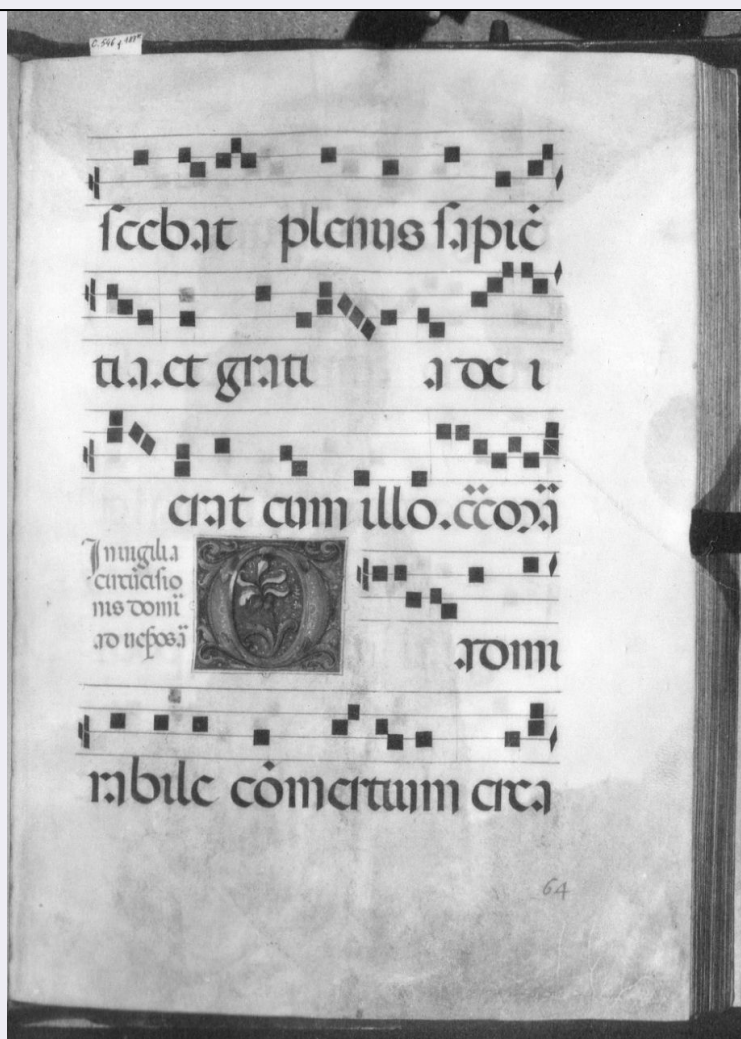 C. 546 f 187
scebat plenus sapiē
tia.et grati a dei
erat cum illo.
In uigilia
circūcisio
nis domī
ad uesꝑos ā
O admi
rabile cōmertium crea
64